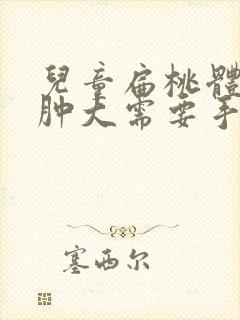 兒童扁桃體
肿大需要手
塞西尔